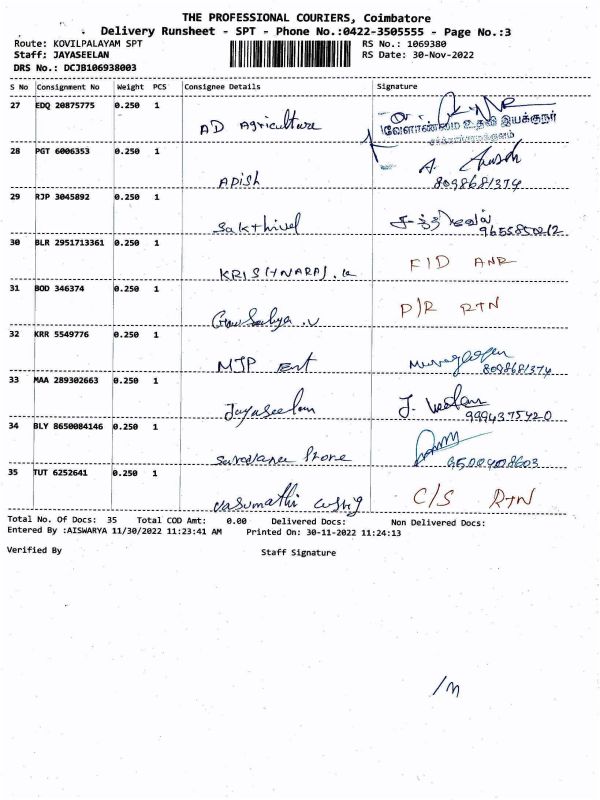 THE PROFESSIONAL COURIERS, Coimbatore
Delivery Runsheet - SPT - Phone No.:0422-3505555 - Page No.:3
Route: KOVILPALAYAM SPT RS No.: 1069380
Staff: JAYASEELAN RS Date: 30-Nov-2022
DRS No.: DCJB106938003
S No Consignment No Weight PCS Consignee Details Signature
27 EDQ 20875775 0.250 1
AD Agriculture
வேளாண்மை உதவி இயக்குநர்
28 PGT 6006353 0.250 1
ADISH 8098681374
29 RJP 3045892 0.250 1
Sakthivel சக்திவேல்
9655850212
30 BLR 2951713361 0.250 1
KRISHNARAJ .k F I D ANR
31 BOD 346374 0.250 1
Gowsalya .V P/R RTN
32 KRR 5549776 0.250 1
MJP Ent Murugesan
8098681374
33 MAA 289302663 0.250 1
Jayaseelan J.
9994375420
34 BLY 8650084146 0.250 1
Store
35 TUT 6252641 0.250 1
Vasumathi C/S RTN
Total No. Of Docs: 35 Total COD Amt: 0.00 Delivered Docs: Non Delivered Docs:
Entered By :AISWARYA 11/30/2022 11:23:41 AM Printed On: 30-11-2022 11:24:13
Verified By Staff Signature